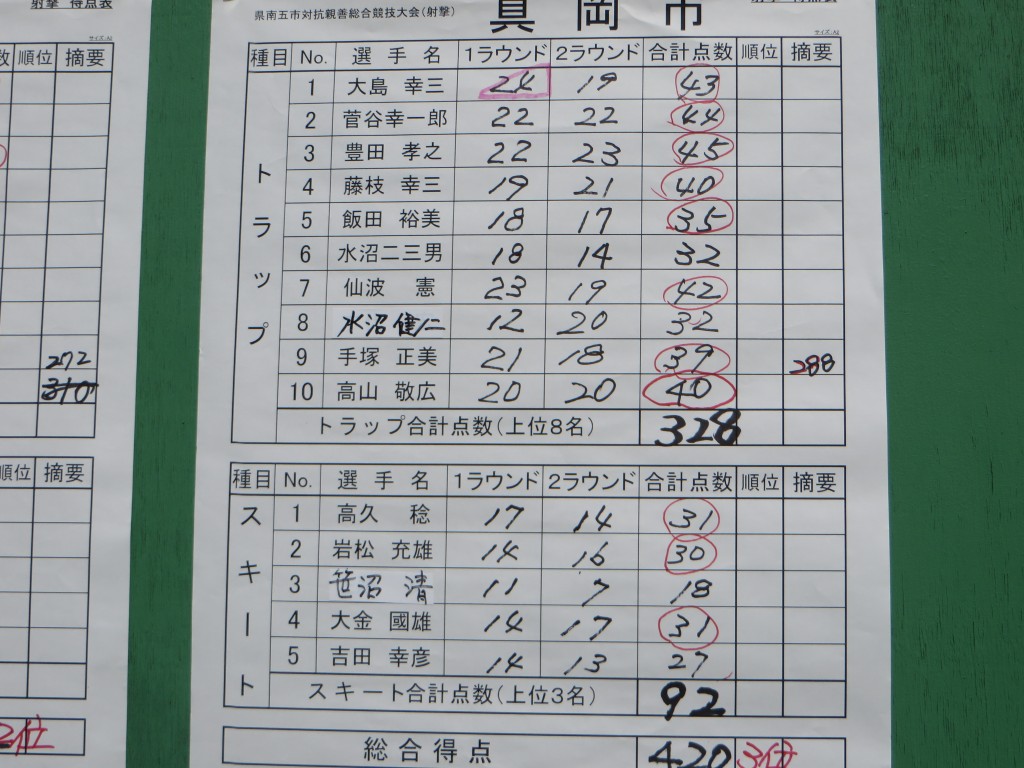 射撃 得点表
サイズ:A2
順位 摘要
272
310
順位 摘要
2位
県南五市対抗親善総合競技大会(射撃)
真岡市
射撃 得点表
サイズ:A2
種目 No. 選手名 1ラウンド 2ラウンド 合計点数 順位 摘要
トラップ
1 大島 幸三 24 19 43
2 菅谷幸一郎 22 22 44
3 豊田 孝之 22 23 45
4 藤枝 幸三 19 21 40
5 飯田 裕美 18 17 35
6 水沼二三男 18 14 32
7 仙波 憲 23 19 42
8 水沼健二 12 20 32
9 手塚 正美 21 18 39 288
10 高山 敬広 20 20 40
トラップ合計点数(上位8名) 328
種目 No. 選手名 1ラウンド 2ラウンド 合計点数 順位 摘要
スキート
1 高久 稔 17 14 31
2 岩松 充雄 14 16 30
3 笹沼 清 11 7 18
4 大金 國雄 14 17 31
5 吉田 幸彦 14 13 27
スキート合計点数(上位3名) 92
総合得点 420 3位